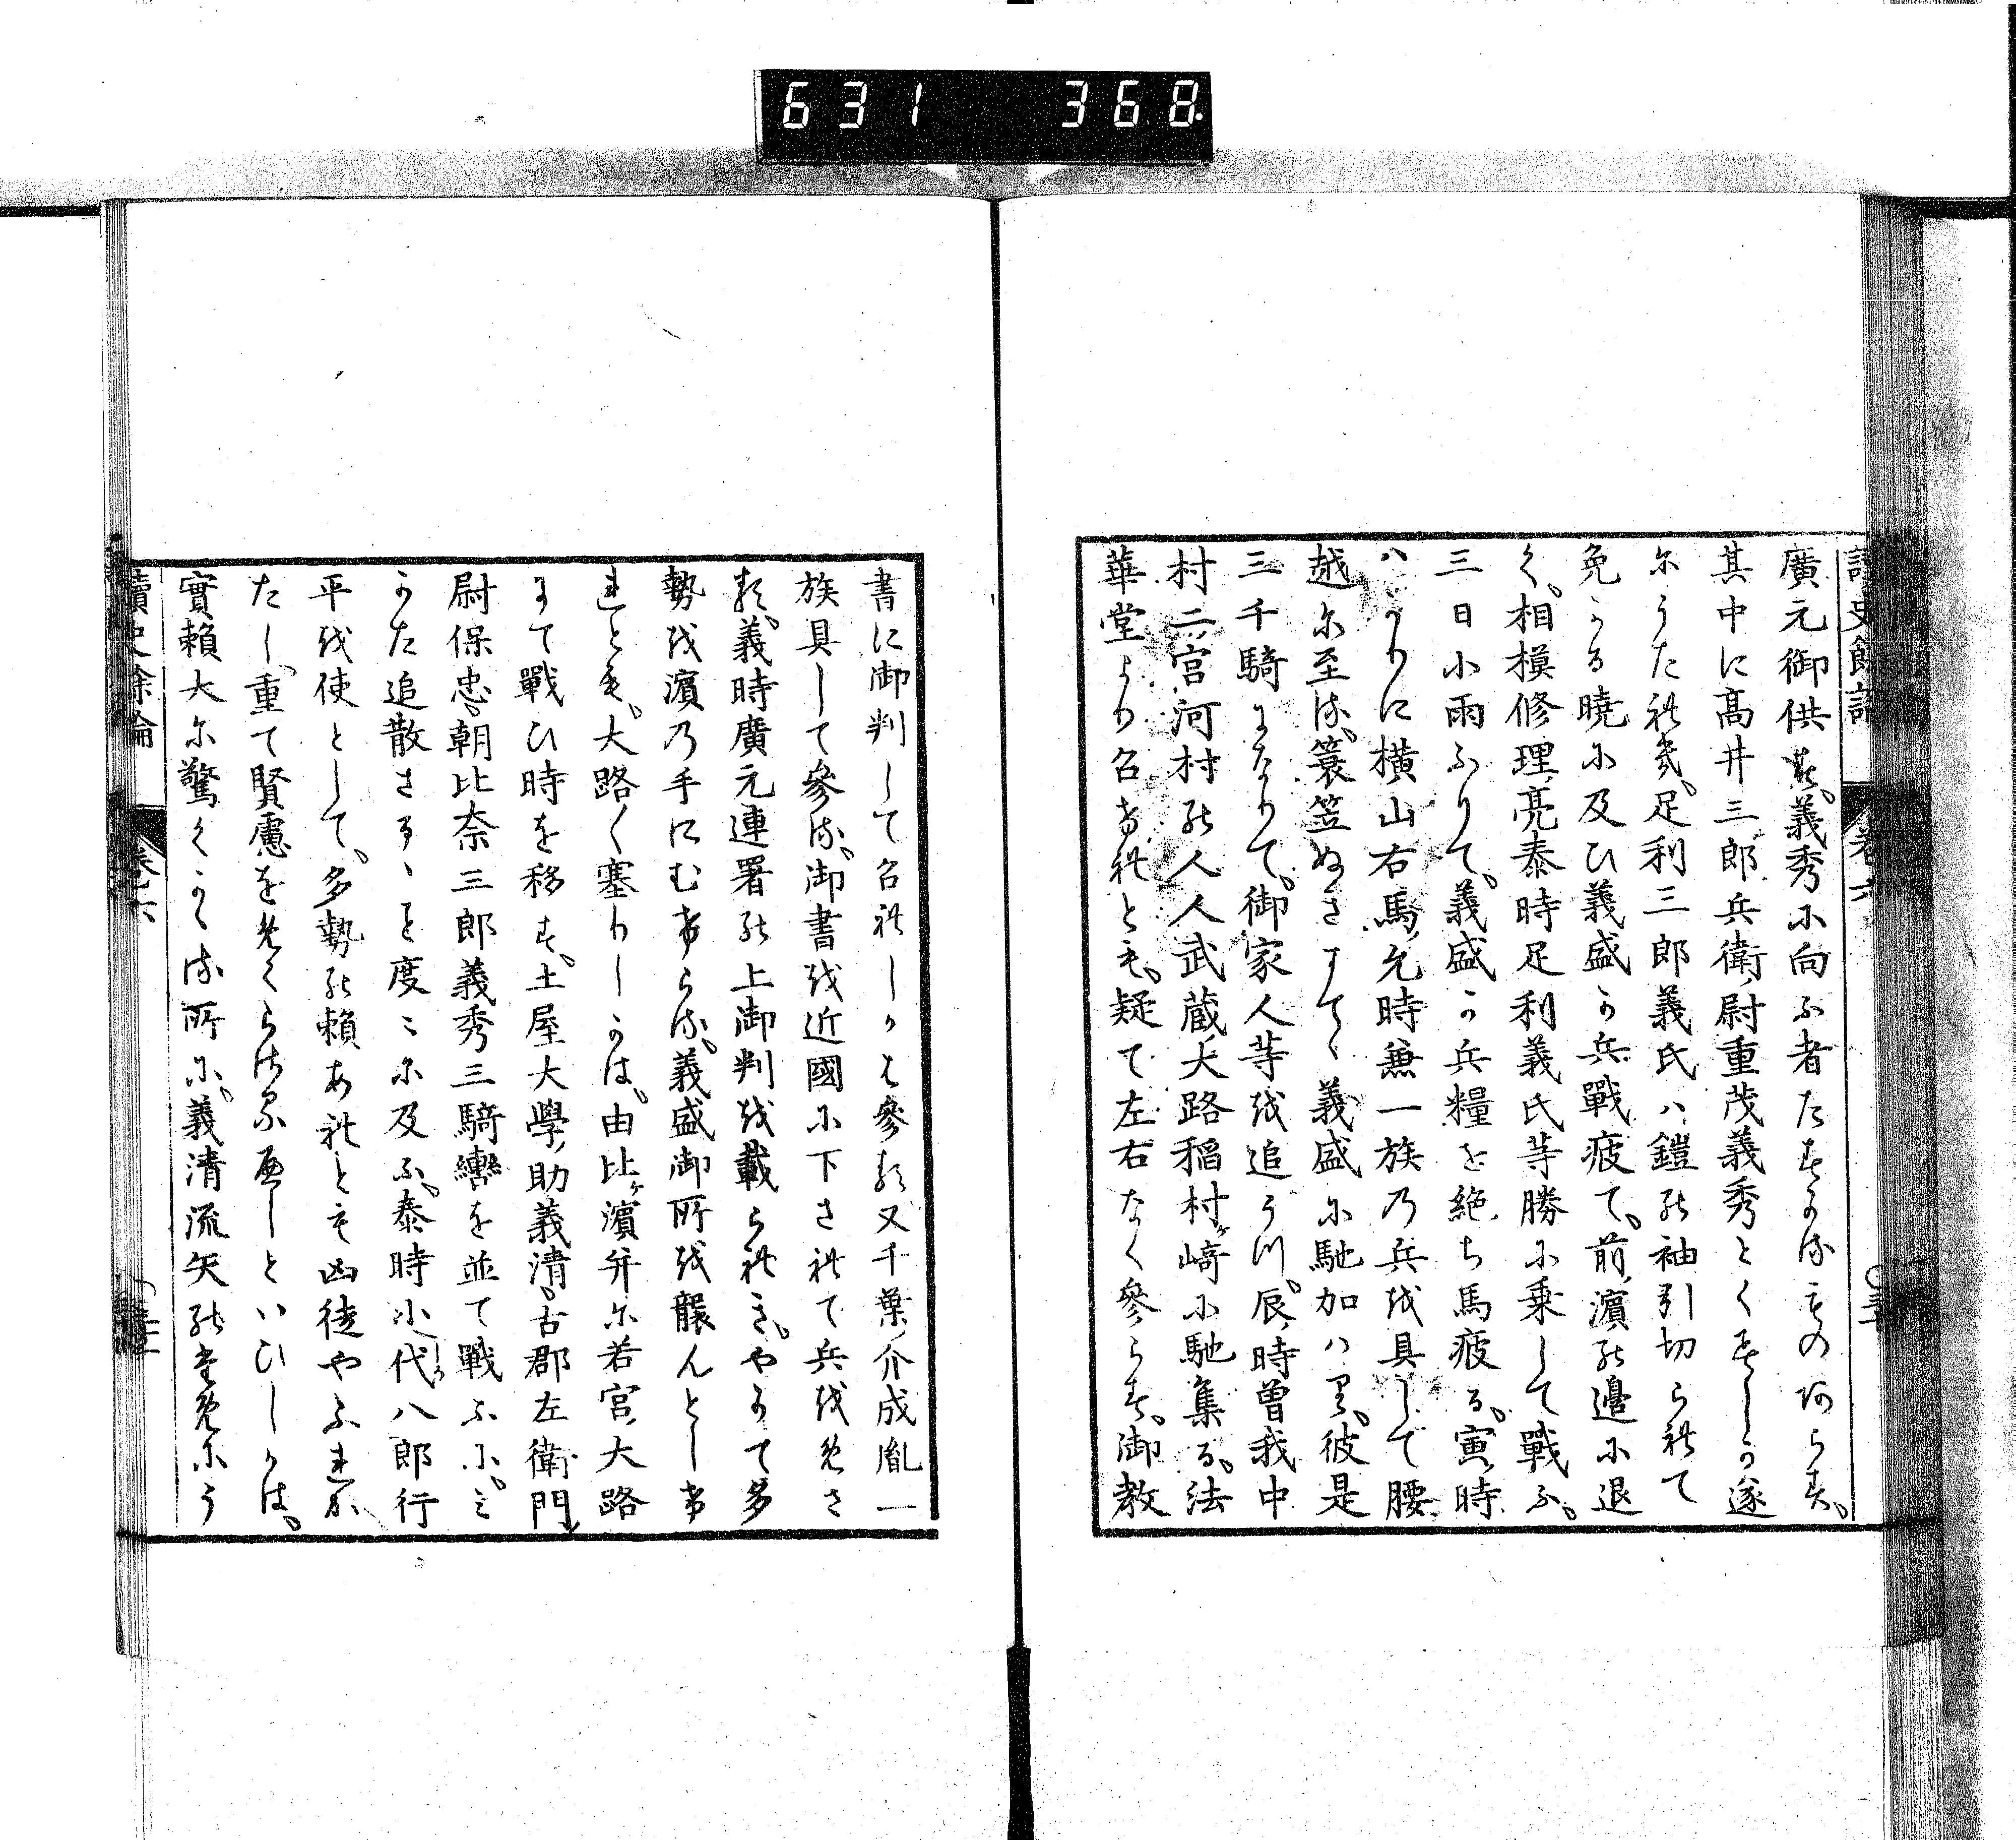 631 368
讀史餘論 卷六
廣元御供す、義秀に向ふ者たすかるものあらす、
其中に髙井三郎兵衛尉重茂義秀とくすしか遂
にうたれき、足利三郎義氏ハ鎧の袖引切られて
免かる曉に及ひ義盛か兵戰疲て、前濱の邊に退
く、相摸修理亮泰時足利義氏等勝に乗して戰ふ、
三日小雨ふりて、義盛か兵糧を絶ち馬疲る、寅時
ハかりに横山右馬允時兼一族乃兵を具して腰
越に至る、簑笠ぬきすてゝ義盛に馳加ハる、彼是
三千騎になりて、御家人等を追うつ、辰時曽我中
村二宮河村の人人武蔵大路稲村ヶ﨑に馳集る、法
華堂より召けれとも、疑て左右なく參らす、御教
書に御判して召れしかは參る又千葉介成胤一
族具して參る、御書を近國に下されて兵をめさ
る、義時廣元連署の上御判を載られき、やかて多
勢を濱乃手にむけらる、義盛御所を襲んとしけ
れとも、大路〱塞りしかは、由比ヶ濱并に若宮大路
にて戰ひ時を移す、土屋大學助義清、古郡左衛門
尉保忠、朝比奈三郎義秀三騎轡を並て戰ふに、み
かた追散さるゝこと度〻に及ふ、泰時小代八郎行
平を使として、多勢の賴あれとも凶徒やふれか
たし、重て賢慮をめくらさるへしといひしかは、
實賴大に驚くかゝる所に、義清流矢の為めにう
讀史餘論 卷六